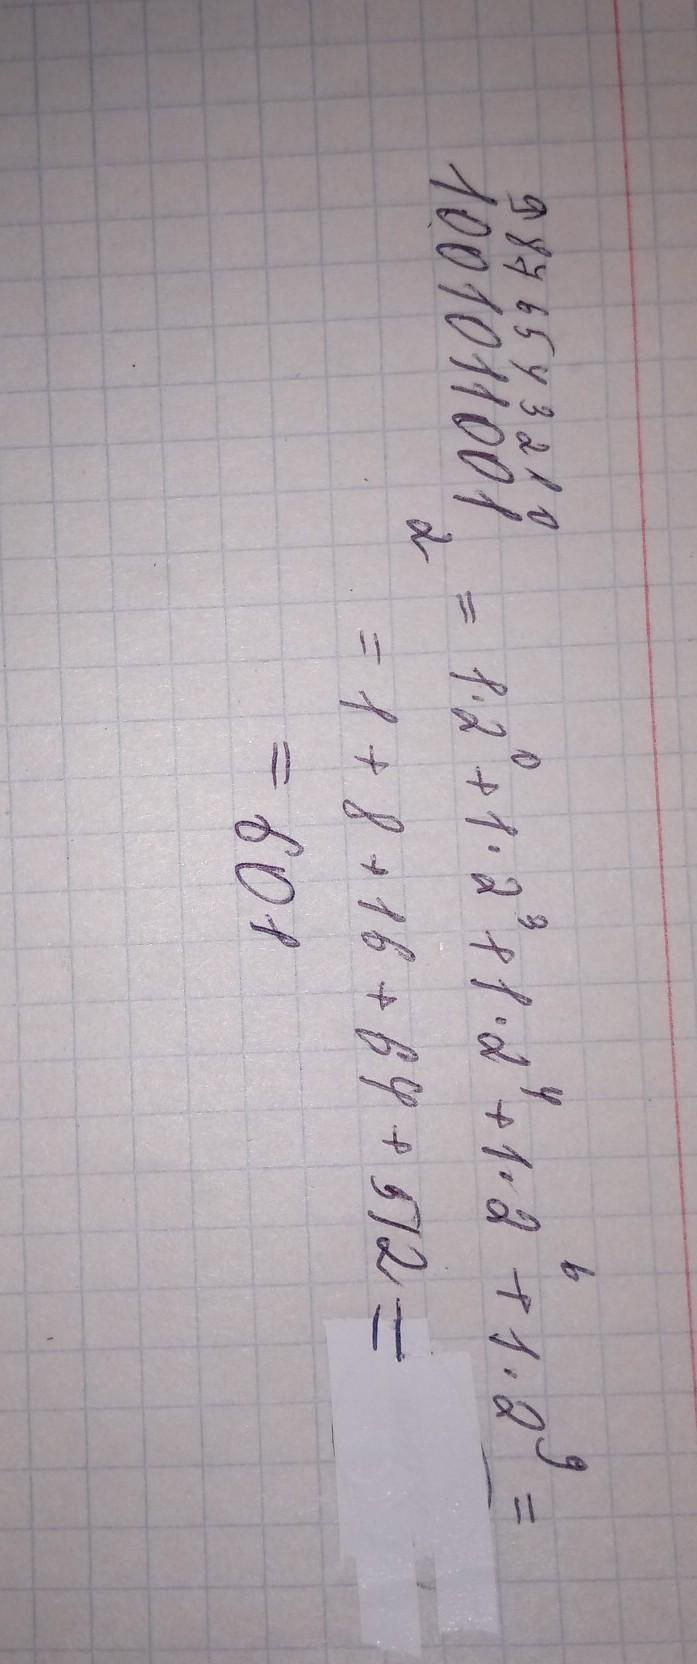 9 8 7 6 5 4 3 2 1 0
1001011001₂ = 1·2⁰ + 1·2³ + 1·2⁴ + 1·2⁶ + 1·2⁹ =
= 1 + 8 + 16 + 64 + 512 =
= 601